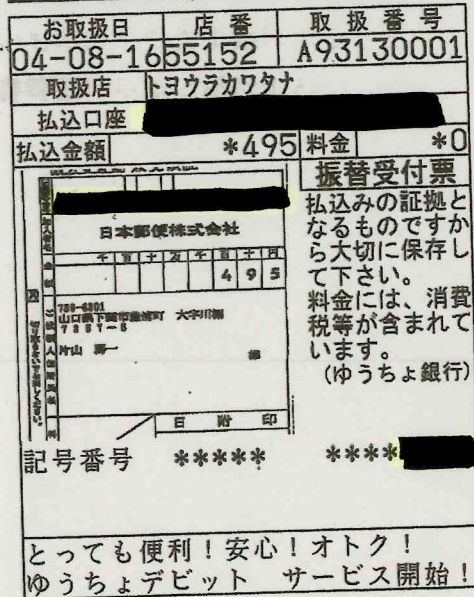 お取扱日 店番 取扱番号
04-08-16 55152 A93130001
取扱店 トヨウラカワタナ
払込口座
払込金額 *495 料金 *0
振替受付票
払込みの証拠と
なるものですか
ら大切に保存し
て下さい。
料金には、消費
税等が含まれて
います。
(ゆうちょ銀行)
日本郵便株式会社
千 百 十 万 千 百 十 円
4 9 5
759-6301
山口県下関市豊浦町 大字川棚
7357-5
片山 様
日 附 印
切り取らないで出してください。
記号番号 ***** ****
とっても便利!安心!オトク!
ゆうちょデビット サービス開始!